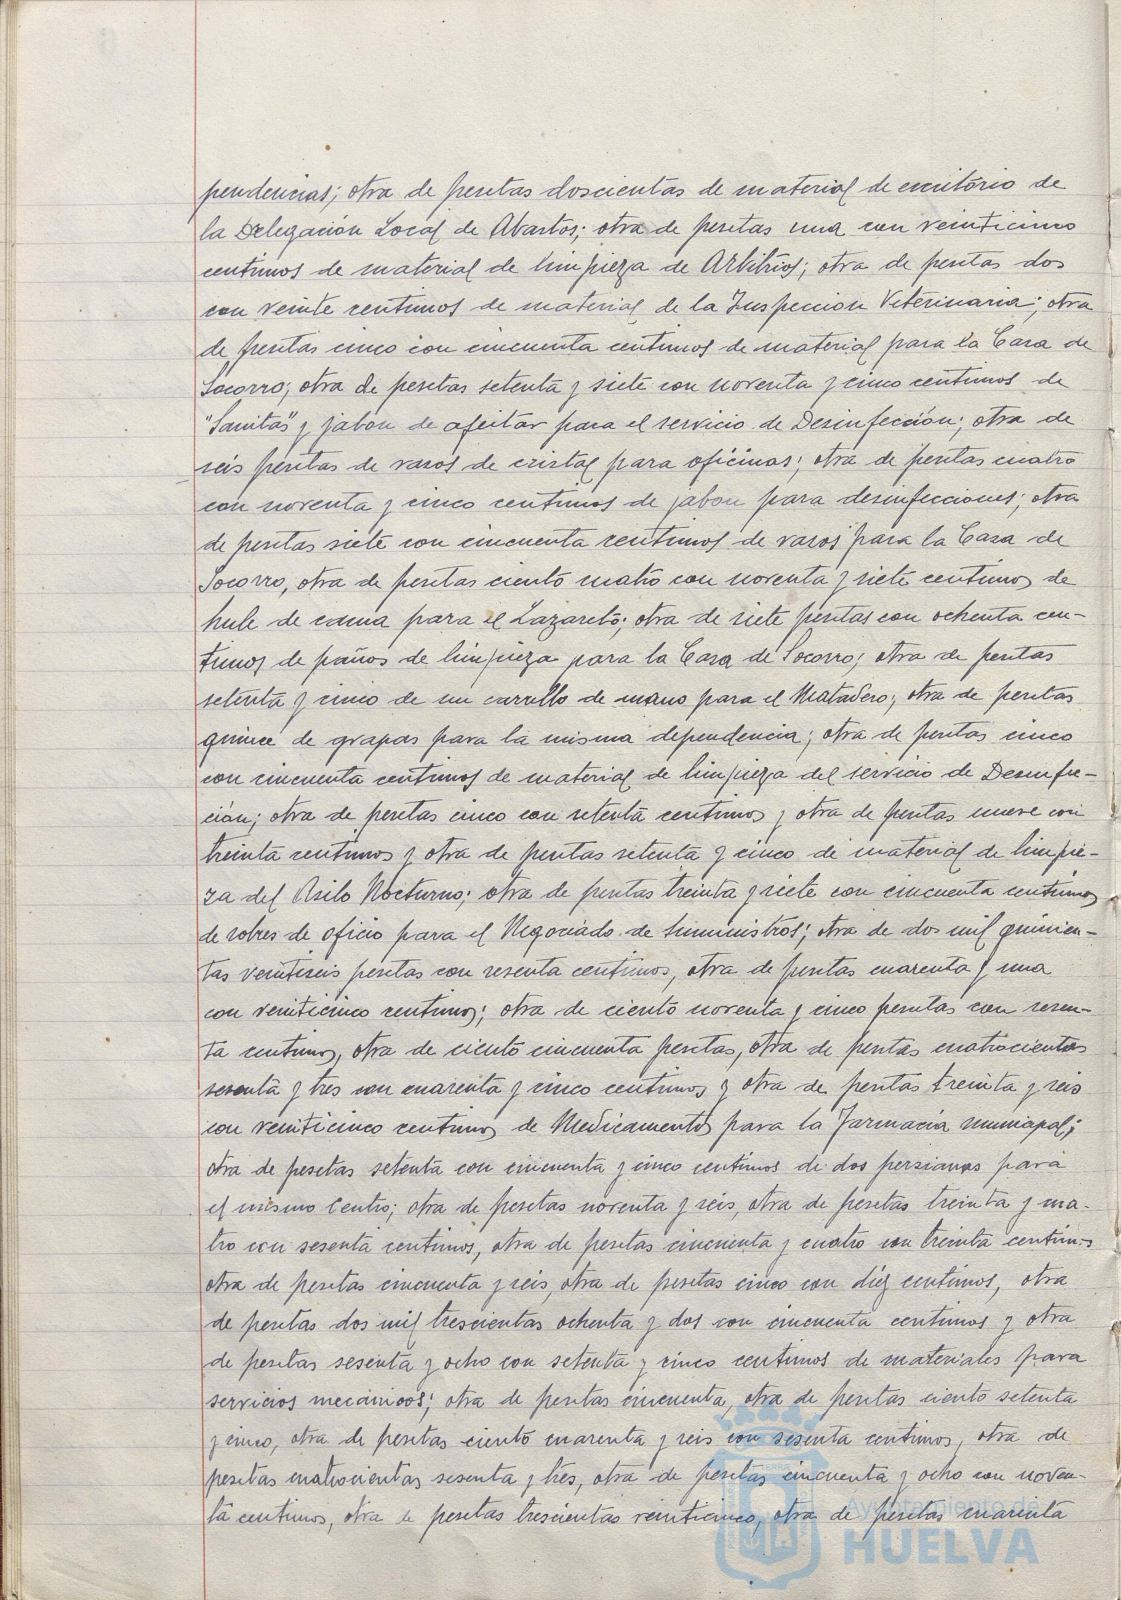 pendencias; otra de pesetas doscientas de material de escritorio de
la Delegación Local de Abastos; otra de pesetas una con veinticinco
centimos de material de limpieza de Arbitrios; otra de pesetas dos
con veinte centimos de material de la Inspección Veterinaria; otra
de pesetas cinco con cincuenta centimos de material para la Casa de
Socorro; otra de pesetas setenta y siete con noventa y cinco centimos de
"Sanitas" y jabon de afeitar para el servicio de Desinfección; otra de
seis pesetas de vasos de cristal para oficinas; otra de pesetas cuatro
con noventa y cinco centimos de jabon para desinfecciones; otra
de pesetas siete con cincuenta centimos de vasos para la Casa de
Socorro, otra de pesetas ciento cuatro con noventa y siete centimos de
hule de cama para el Lazareto; otra de siete pesetas con ochenta cen-
timos de paños de limpieza para la Casa de Socorro; otra de pesetas
setenta y cinco de un carrillo de mano para el Matadero; otra de pesetas
quince de grapas para la misma dependencia; otra de pesetas cinco
con cincuenta centimos de material de limpieza del servicio de Desinfec-
ción; otra de pesetas cinco con setenta centimos y otra de pesetas nueve con
treinta centimos y otra de pesetas setenta y cinco de material de limpie-
za del Asilo Nocturno; otra de pesetas treinta y siete con cincuenta centimos
de sobres de oficio para el Negociado de Suministros; otra de dos mil quinien-
tas veintiseis pesetas con sesenta centimos, otra de pesetas cuarenta y una
con veinticinco centimos; otra de ciento noventa y cinco pesetas con sesen-
ta centimos, otra de ciento cincuenta pesetas, otra de pesetas cuatrocientas
sesenta y tres con cuarenta y cinco centimos y otra de pesetas treinta y seis
con veinticinco centimos de Medicamentos para la Farmacia municipal;
otra de pesetas setenta con cincuenta y cinco centimos de dos persianas para
el mismo Centro; otra de pesetas noventa y seis, otra de pesetas treinta y cua-
tro con sesenta centimos, otra de pesetas cincuenta y cuatro con treinta centimos
otra de pesetas cincuenta y seis, otra de pesetas cinco con diez centimos, otra
de pesetas dos mil trescientas ochenta y dos con cincuenta centimos y otra
de pesetas sesenta y ocho con setenta y cinco centimos de materiales para
servicios mecánicos; otra de pesetas cincuenta, otra de pesetas ciento setenta
y cinco, otra de pesetas ciento cuarenta y seis con sesenta centimos, otra de
pesetas cuatrocientas sesenta y tres, otra de pesetas cincuenta y ocho con noven-
ta centimos, otra de pesetas trescientas veinticinco, otra de pesetas cuarenta
Ayuntamiento de
HUELVA